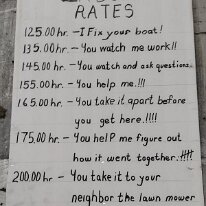 RATES
125.00 hr. - I Fix your boat!
135.00 hr. - You watch me work!!
145.00 hr. - You watch and ask questions.
155.00 hr. - You help me.!!!
165.00 hr. - You take it apart before
you get here.!!!!
175.00 hr. - You help me figure out
how it went together.!!!!!
200.00 hr. - You take it to your
neighbor the lawn mower